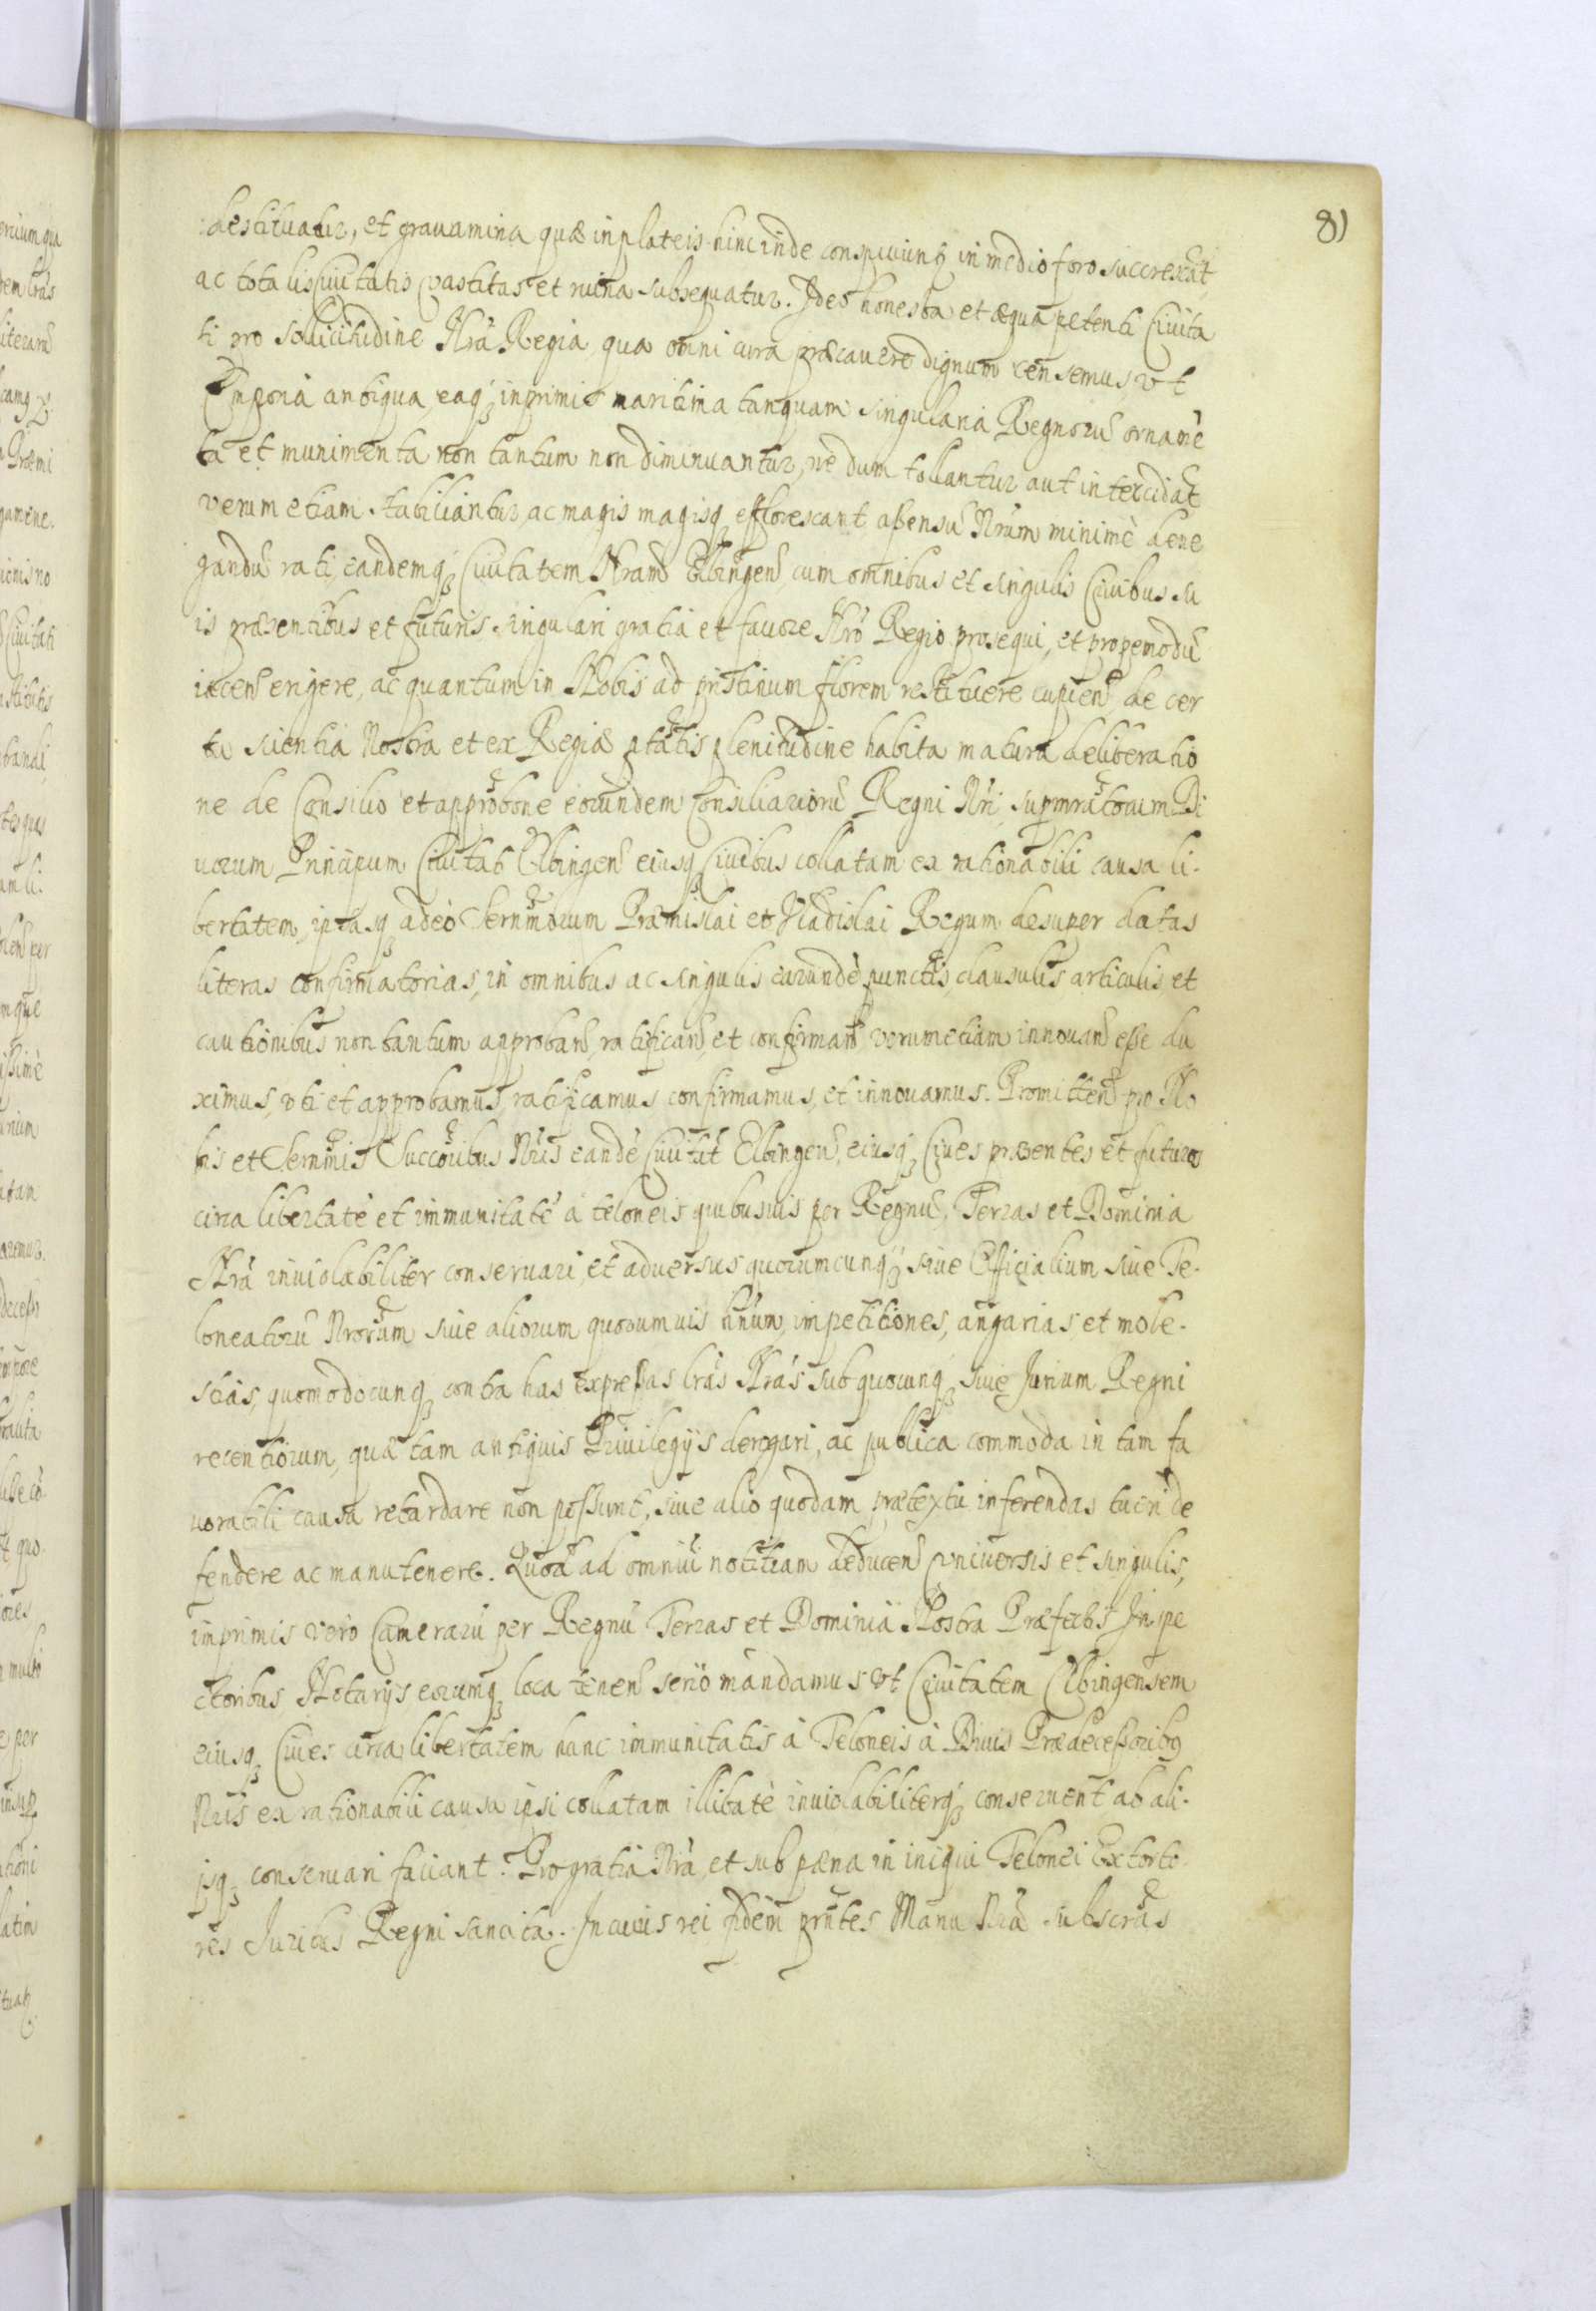 81
destituatur, et grauamina quæ in plateis hinc inde conspiciunt[ur] in medio foro succrescāt
ac totalis Ciuitatis vastitas et ruina subsequatur. Ideo honesta et æqua petenti Ciuita
ti pro sollicitudine Nrā Regia, qua omni cura præcauere dignum censemus, vt
Emporia antiqua, eaq; inprimis maritima tanquam singularia Regnorū ornamē
ta et munimenta non tantum non diminuantur, ne dum tollantur aut intercidāt
verum etiam stabiliantur, ac magis magisq; efflorescant assensū Nrūm minimè dene
gandū rati, eandemq; Ciuitatem Nram Elbingen̄ cum omnibus et singulis Ciuibus su
is præsentibus et futuris singulari gratia et fauore Nrō Regio prosequi, et propemodū
iacen̄ erigere, ac quantum in Nobis ad pristinum florem restituere cupien̄ de cer
ta scientia Nostra et ex Regiæ ptātis plenitudine habita matura deliberatio
ne de Consilio et approbōne eorundem Consiliariorū Regni Nri, supmrātorum Di
uorum Principum Ciuitati Elbingen̄ eiusq; Ciuibus collatam ex rationabili causa li-
bertatem, ipsasq; adeò Sernmorum Præmislai et Vladislai Regum desuper datas
literas confirmatorias, in omnibus ac singulis earundē punctis, clausulis articulis, et
cautionibus non tantum approban̄, ratifican̄, et confirman̄, verumetiam innouan̄ esse du
ximus, vti et approbamus, ratificamus confirmamus, et innouamus. Promitten̄ pro No
bis et Sernmis Succōribus Nrīs eandē Ciuitāt Elbingen̄, eiusq; Ciues præsentes et futuros
circa libertatē et immunitatē à teloneis quibusuis per Regnū, Terras et Dominia
Nrā inuiolabiliter conseruari, et aduersus quorumcunq; siue Officialium siue Te-
loneatorū Nrorum siue aliorum quorumuis hnūm, impetitiones, angarias, et mole-
stias, quomodocunq; contra has expressas lrās Nrās sub quocunq; siue Jurium Regni
recentiorum, quæ tam antiquis Priuilegijs derogari, ac publica commoda in tam fa
uorabili causa retardare non possunt, siue alio quodam prætextu inferendas tueri de
fendere ac manutenere. Quod ad omniū notitiam deducen̄ vniuersis et singulis,
imprimis verò Camerarū per Regnū Terras et Dominia Nostra Præfectis Inspe
ctoribus Notarijs eorumq; loca tenen̄ seriò mandamus vt Ciuitatem Elbingensem
eiusq; Ciues circa libertatem hanc immunitatis à Teloneis à Diuis Prædecessoribus
Nrīs ex rationabili causa ipsi collatam illibatè inuiolabiliterq; conseruent ab ali-
jsq; conseruari faciant. Pro gratia Nrā, et sub pœna in iniqui Telonei Extorto
res Juribus Regni sancita. In cuius rei fidem prntes Manu Nrā subscrās